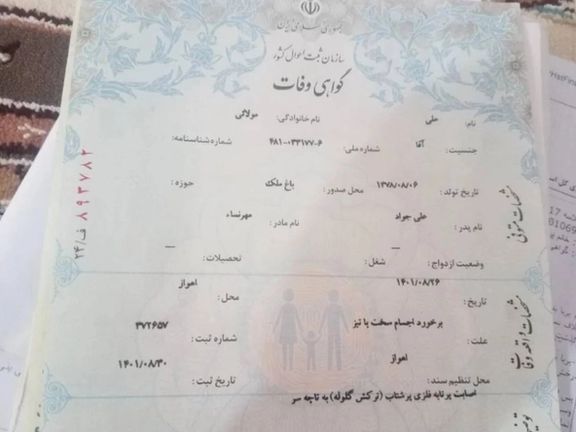 جمهوری اسلامی ایران
سازمان ثبت احوال کشور
گواهی وفات
نام: علی نام خانوادگی: مولائی
جنسیت: آقا شماره ملی: ۴۸۱-۰۳۳۱۷۷-۶ شماره شناسنامه:
تاریخ تولد: ۱۳۷۸/۰۸/۰۶ محل صدور: باغ ملک حوزه:
نام پدر: علی جواد نام مادر: مهرنساء
وضعیت ازدواج: — شغل: تحصیلات: —
مشخصات متوفی
تاریخ: ۱۴۰۱/۰۸/۲۶ محل: اهواز
علت: برخورد اجسام سخت یا تیز شماره ثبت: ۳۷۲۶۵۷
محل تنظیم سند: اهواز تاریخ ثبت: ۱۴۰۱/۰۸/۳۰
مشخصات واقعه وفات
اصابت پرتابه فلزی پرشتاب (ترکش گلوله) به ناحیه سر
۸۹۳۷۸۲ ف/۲۴